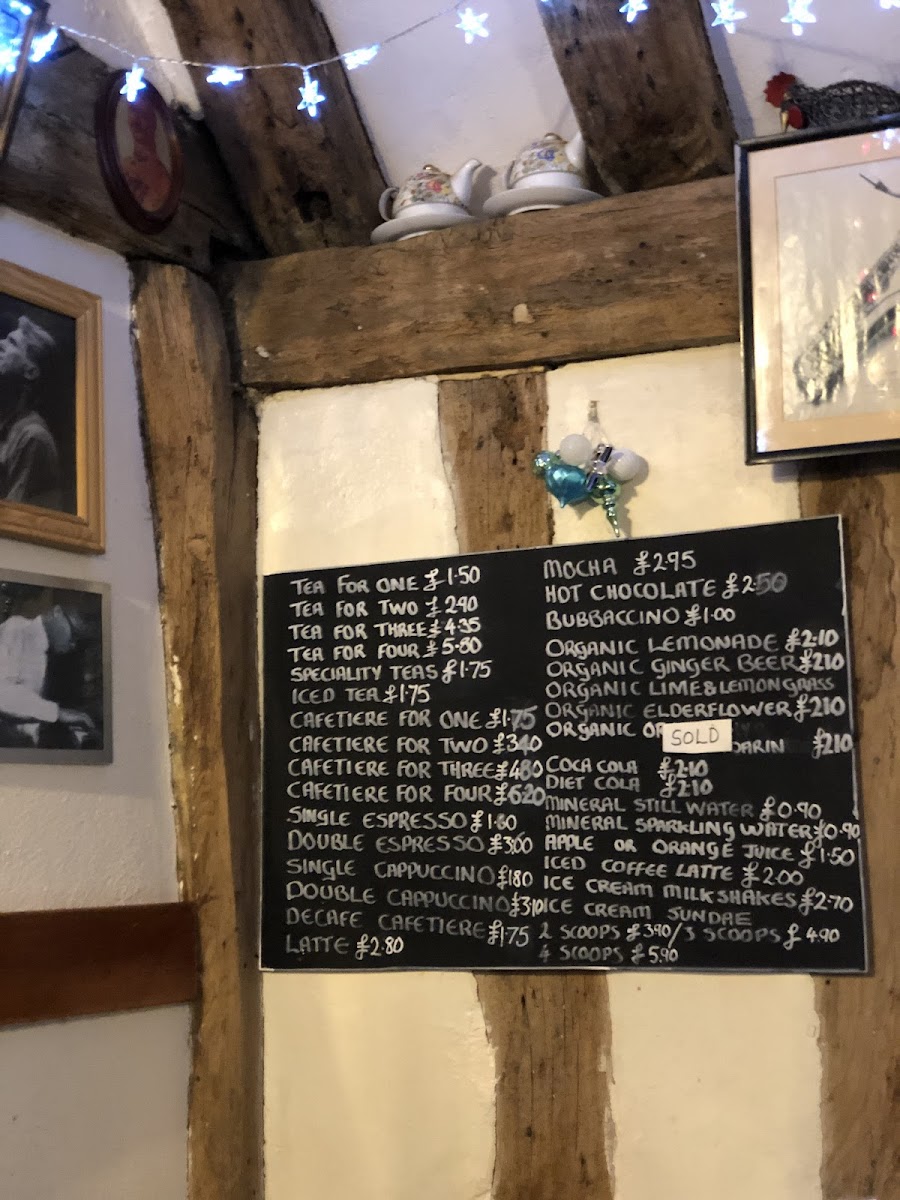 TEA FOR ONE £1.50
TEA FOR TWO £2.90
TEA FOR THREE £4.35
TEA FOR FOUR £5.80
SPECIALITY TEAS £1.75
ICED TEA £1.75
CAFETIERE FOR ONE £1.75
CAFETIERE FOR TWO £3.40
CAFETIERE FOR THREE £4.80
CAFETIERE FOR FOUR £6.20
SINGLE ESPRESSO
DOUBLE ESPRESSO £3.00
SINGLE CAPPUCCINO £1.80
DOUBLE CAPPUCCINO £3.10
DECAFE CAFETIERE £1.75
LATTE £2.80
MOCHA £2.95
HOT CHOCOLATE £2.50
BUBBACCINO £1.00
ORGANIC LEMONADE £2.10
ORGANIC GINGER BEER £2.10
ORGANIC LIME & LEMONGRASS
ORGANIC ELDERFLOWER £2.10
ORGANIC
SOLD
£2.10
COCA COLA £2.10
DIET COLA £2.10
MINERAL STILL WATER £0.90
MINERAL SPARKLING WATER £0.90
APPLE OR ORANGE JUICE £1.50
ICED COFFEE LATTE £2.00
ICE CREAM MILKSHAKES £2.70
ICE CREAM SUNDAE
2 SCOOPS £3.90/3 SCOOPS £4.90
4 SCOOPS £5.90